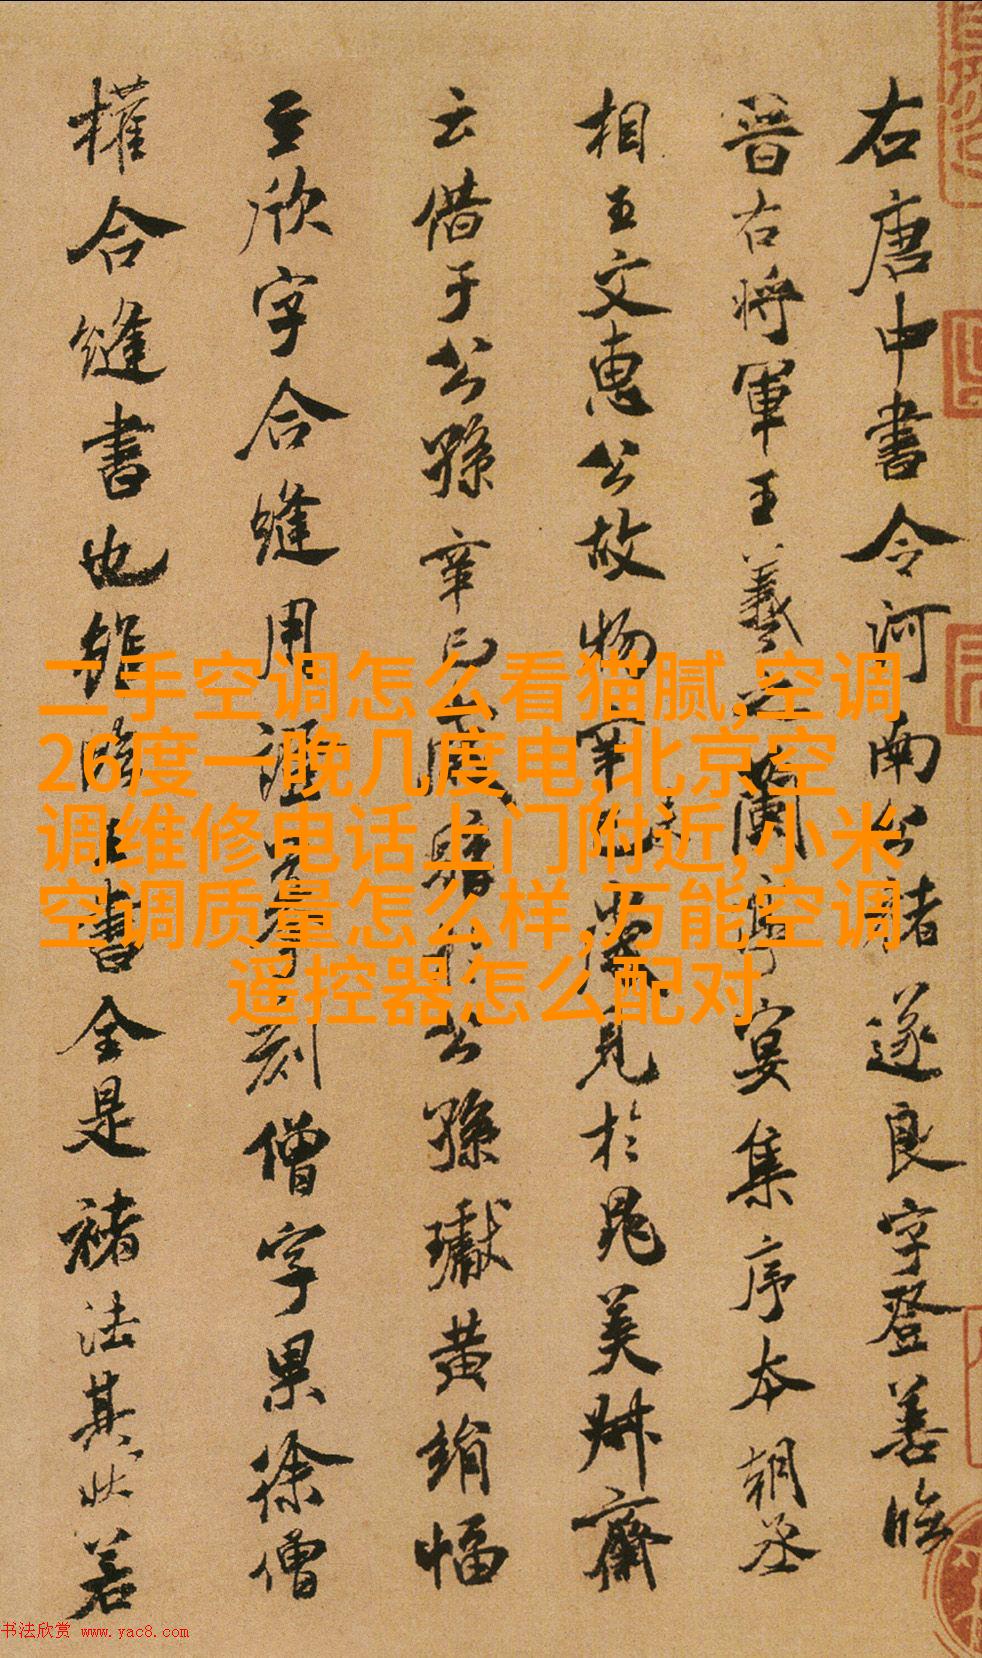 右唐中書令河南公褚遂良字登善臨
晉右將軍王羲之蘭亭宴集序本朝丞
相王文惠公故物辛未歲見於晁美叔齋
云借于公孫辛巳歲購於公孫瓛黃絹幅
至欣字合縫用證摹刻僧字果徐僧
權合縫書也雖臨王書全是褚法其狀若
二手空调怎么看猫腻,空调
26度一晚几度电,北京空
调维修电话上门附近,小米
空调质量怎么样,万能空调
遥控器怎么配对
书法欣赏 www.yac8.com